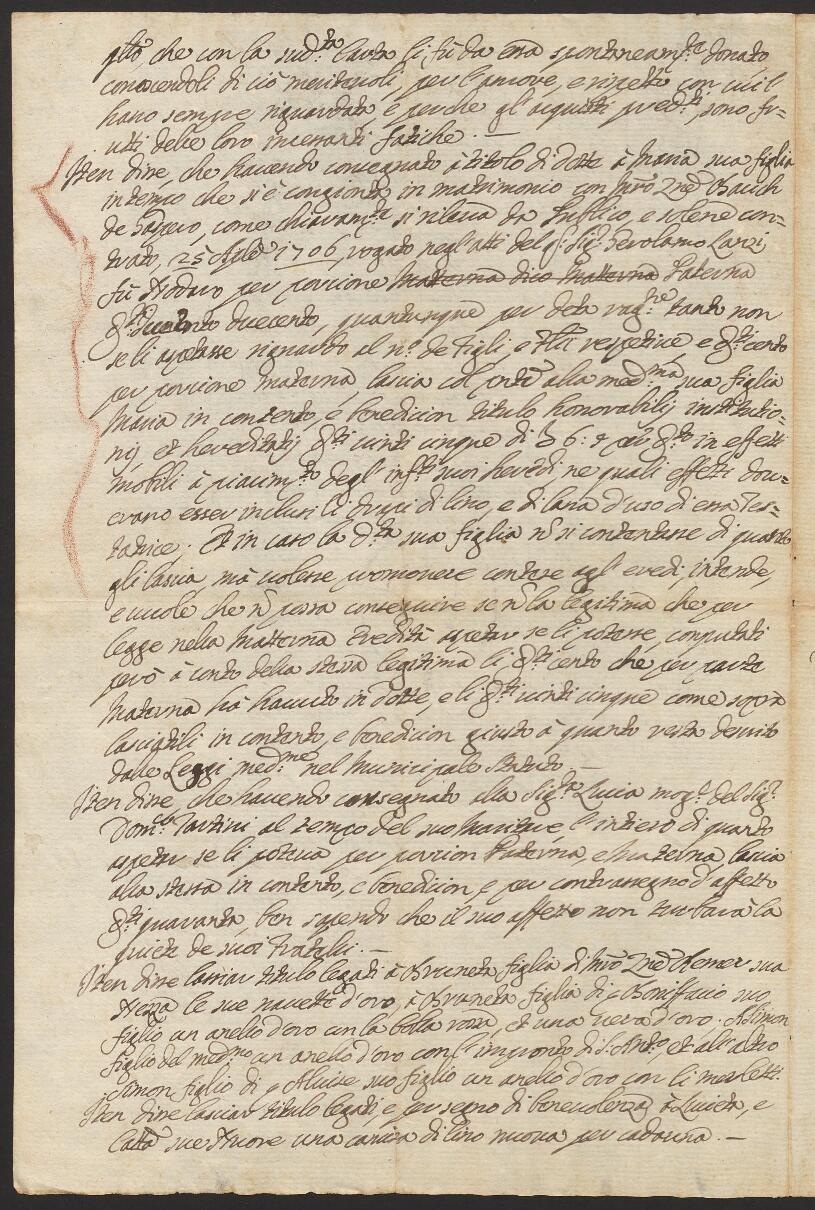 che con la sud.ta carta li fù da essa spontaneam.te donato
conoscendoli di ciò meritevoli, per l'amore, e rispetto con cui l'
hano sempre riguardata, e perche gl'acquisti pred.ti, sono fr=
utti delle loro incessanti fatiche. —
Iten disse, che havendo consegnato à titolo di dotte à Maria sua figlia
in tempo che si è congionta in matrimonio con
de come chiaram.te si rileva da Publico, e solene con=
trato, 25 Aple 1706, rogato negl'atti del q: Sig: Gerolamo
fù Nodaro per porcione Matterna dico Matterna Paterna
duecento, quantunque per deta rag.ne tanto non
se li aspetasse riguardo al n.o de Figli, e respetive e cento
per porcione Materna, lascia col alla med.ma sua figlia
Maria in contento, e benedicion titulo honorabilij institutio=
nij et hereditatij vinti cinque di 6: in effetti
mobili à piacim.to degl'inf.ti suoi heredi ne quali effetti dov=
erano esser inclusi li drapi di lino, e di lana d'uso di essa Tes=
tatrice. Et in caso la d.ta sua figlia ñ si contentasse di quanto
gli lascia, mà volesse promovere contese agl'eredi, intende,
e vuole che ñ possa conseguire se ñ la legitima che per
legge nella Matterna Eredità aspetar se li potesse, computati
però à conto della stessa legitima li cento che per parte
Materna hà havuto in dotte, e li vinti cinque come sopra
lasciatili in contento, e benedicion giusto à quanto resta
dalle Leggi med.me nel Municipale Statuto. —
Iten disse, che havendo consegnato alla Sig.ra Lucia mog.e del Sig.r
Dom.co Tartini al tempo del suo l'intiero di quanto
aspetar se li poteva per porcion Paterna, e Materna, lascia
alla stessa in contento, e benedicion e per contrassegno d'affetto
quaranta, ben sapendo che il suo affetto non turbarà la
quiete de suoi Fratelli. —
Iten disse lassiar titulo legati à Bruneta figlia di sua
Nezza le sue navete d'oro, à Bruneta figlia di Boniffacio suo
figlio un anello d'oro con la rossa, et una vera d'oro. A Simon
figlio del med.mo un anello d'oro con l'impronto di S. Ant.o, et all'altro
Simon figlio di Alvise suo figlio un anello d'oro con li merletti.
Iten disse lasciar titulo legati, e per segno di benevolenza à e
Catta sue Nuore una camisa di lino nuova per cadauna. —